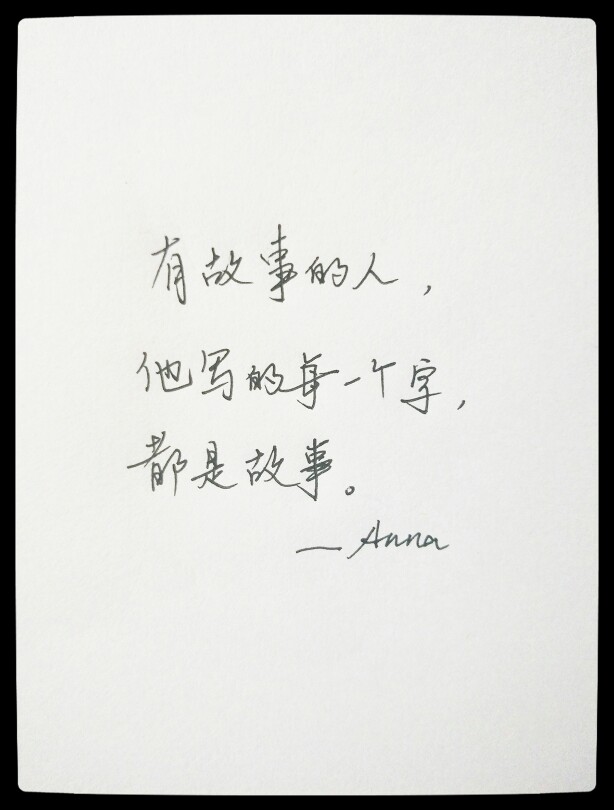 有故事的人，
他写的每一个字，
都是故事。
—Anna